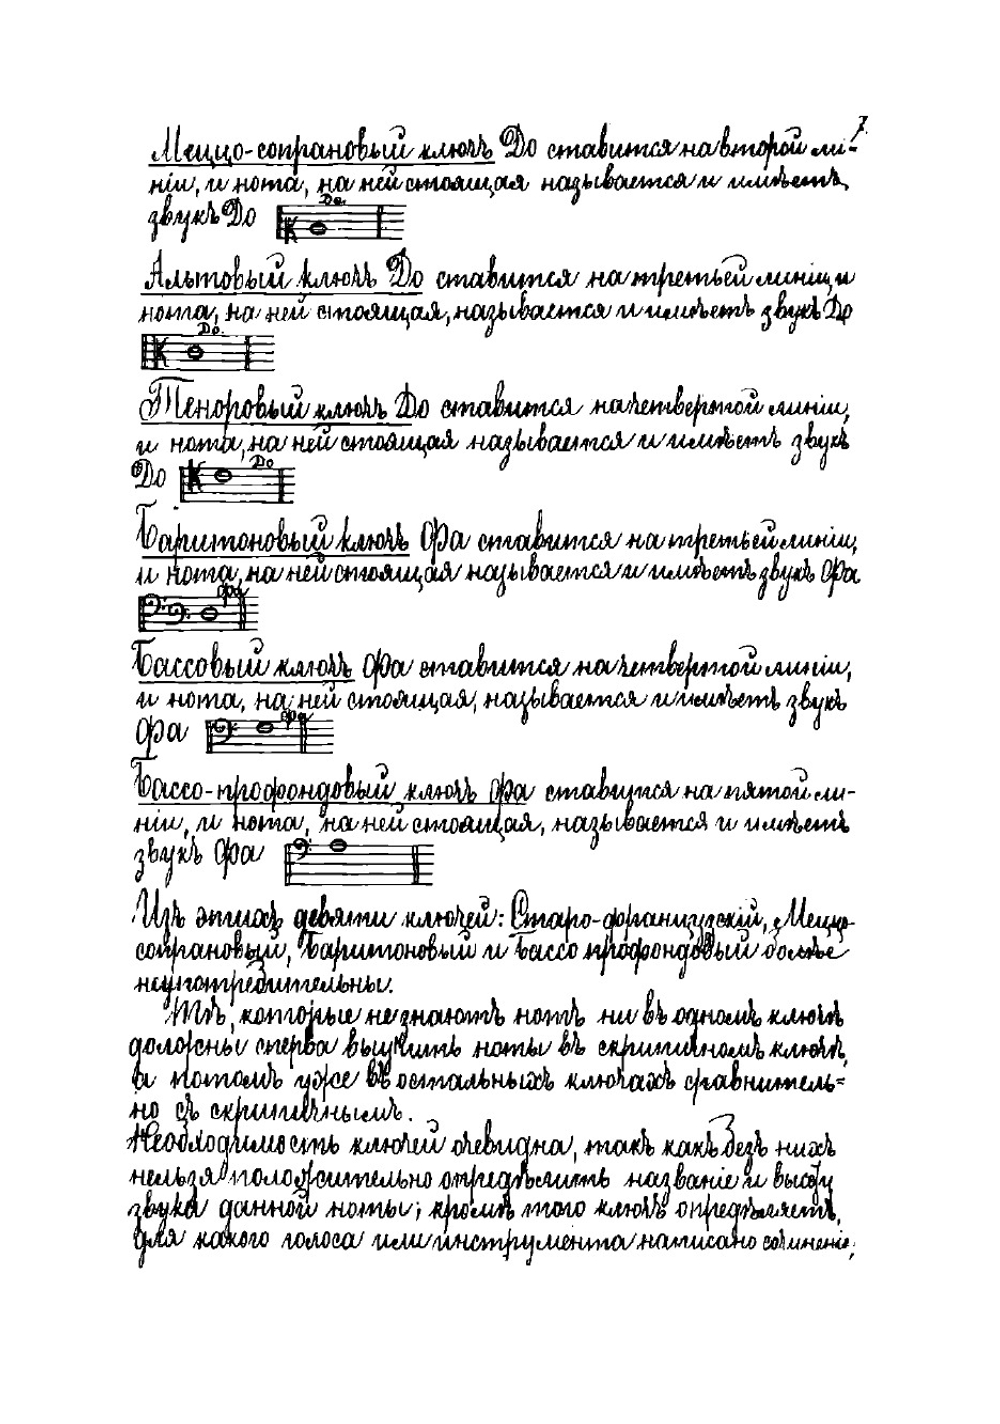 7.
Меццо-сопрановый ключъ До ставится на второй ли-
ніи, и нота, на ней стоящая называется и имѣетъ
звукъ До
До.
Альтовый ключъ До ставится на третьей линіи, и
нота, на ней стоящая, называется и имѣетъ звукъ До
До.
Теноровый ключъ До ставится на четвертой линіи,
и нота, на ней стоящая называется и имѣетъ звукъ
До
До
Баритоновый ключъ Фа ставится на третьей линіи,
и нота, на ней стоящая называется и имѣетъ звукъ Фа
Фа
Бассовый ключъ Фа ставится на четвертой линіи,
и нота, на ней стоящая, называется и имѣетъ звукъ
Фа
Фа
Бассо-профондовый ключъ Фа ставится на пятой ли-
ніи, и нота, на ней стоящая, называется и имѣетъ
звукъ Фа
Изъ этихъ девяти ключей: Старо-французскій, Меццо-
сопрановый, Баритоновый и Бассо профондовый болѣе
неупотребительны.
Тѣ, которые не знаютъ нотъ ни въ одномъ ключѣ
должны сперва выучить ноты въ скрипичномъ ключѣ,
а потомъ уже въ остальныхъ ключахъ сравнитель=
но съ скрипичнымъ.
Необходимость ключей очевидна, такъ какъ безъ нихъ
нельзя положительно опредѣлить названіе и высоту
звука данной ноты; кромѣ того ключъ опредѣляетъ,
для какого голоса или инструмента написано сочиненіе;